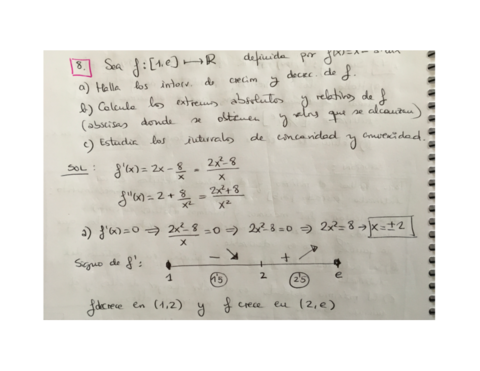 8. Sea f: [1,e] ⟼ ℝ definida por f(x)=x
a) Halla los interv. de crecim y decrec. de f.
b) Calcula los extremos absolutos y relativos de f
(abscisas donde se obtienen y valores que se alcanzan)
c) Estudia los intervalos de concavidad y convexidad.
SOL: f'(x) = 2x - 8/x = (2x²-8)/x
f''(x) = 2 + 8/x² = (2x²+8)/x²
a) f'(x)=0 ⟹ (2x²-8)/x = 0 ⟹ 2x²-8=0 ⟹ 2x²=8 → x=±2
Signo de f': - ↘ + ↗
1 1'5 2 2'5 e
f decrece en (1,2) y f crece en (2,e)